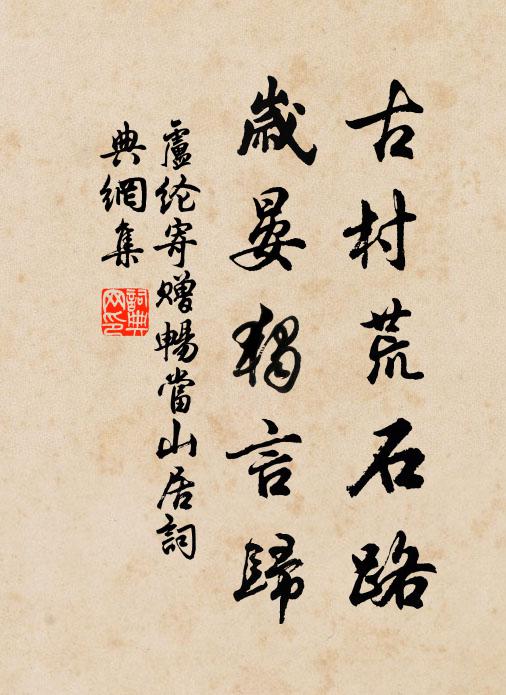 古村荒石路
歲晏獨言歸
盧纶寄贈暢當山居詞
典網集
詞典
网印